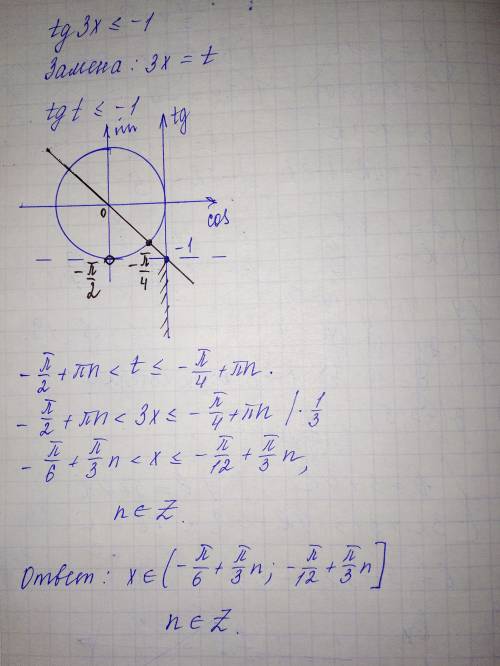 tg 3x ≤ -1
Замена: 3x = t
tg t ≤ -1
tg
0
cos
-1
-π/2
-π/4
-π/2 + πn < t ≤ -π/4 + πn.
-π/2 + πn < 3x ≤ -π/4 + πn | · 1/3
-π/6 + π/3 n < x ≤ -π/12 + π/3 n,
n ∈ Z.
Ответ: x ∈ (-π/6 + π/3 n; -π/12 + π/3 n]
n ∈ Z.